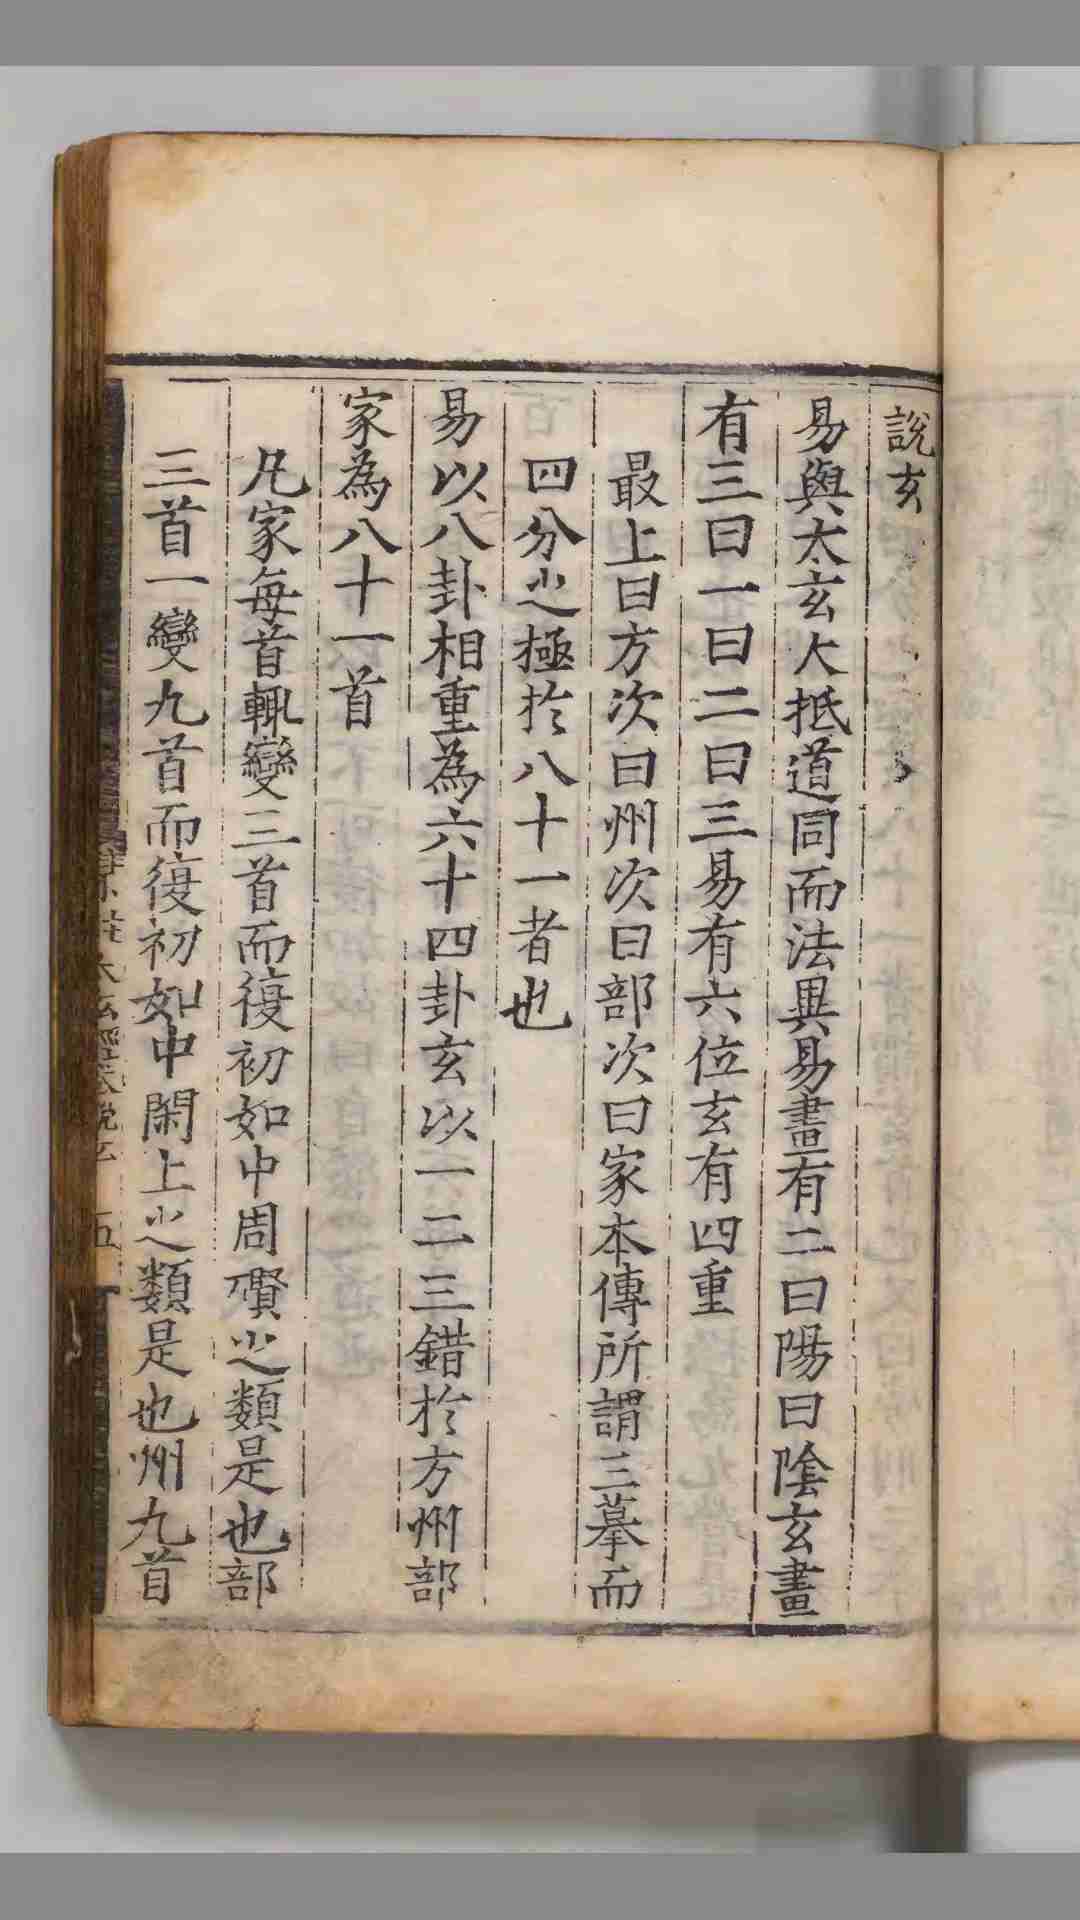 說玄
易與太玄大抵道同而法異易畫有二曰陽曰陰玄畫
有三曰一曰二曰三易有六位玄有四重
最上曰方次曰州次曰部次曰家本傳所謂三摹而
四分之極於八十一者也
易以八卦相重為六十四卦玄以一二三錯於方州部
家為八十一首
凡家每首輒變三首而復初如中周礥之類是也部
三首一變九首而復初如中閑上之類是也州九首
太玄經 說玄 五